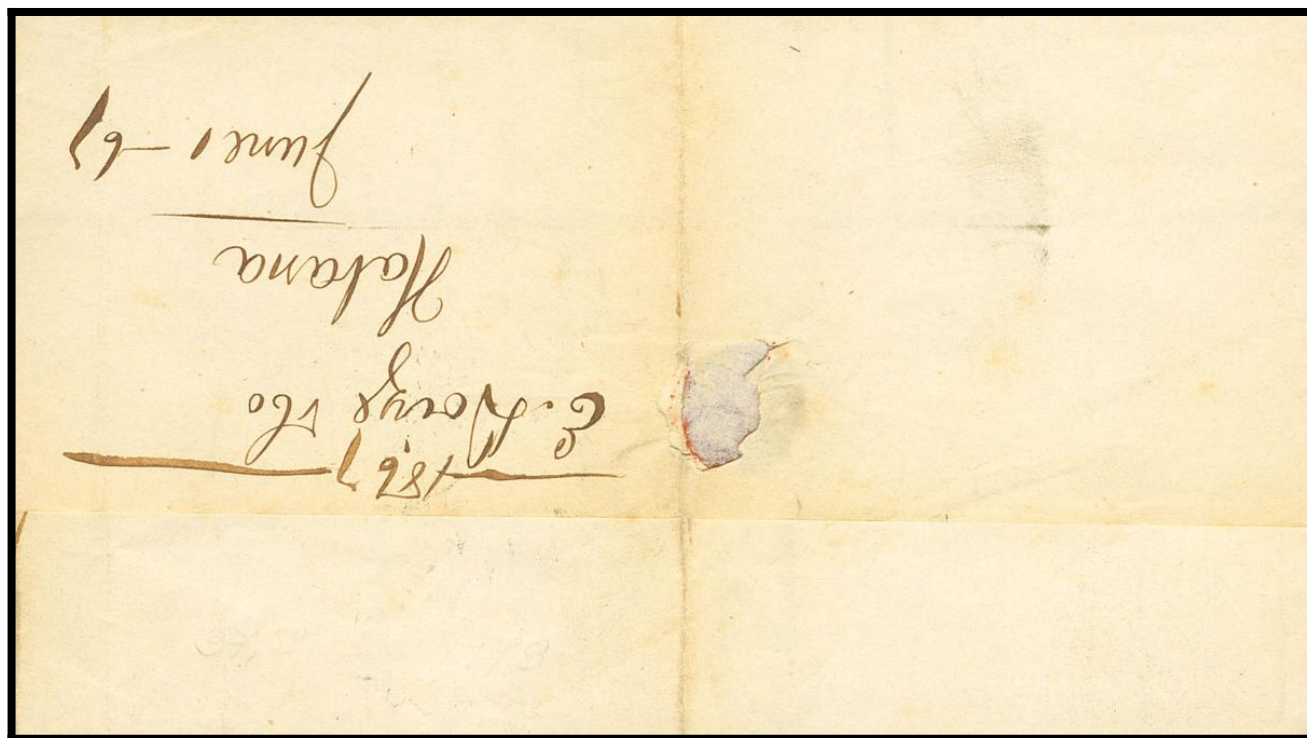 1867
E. &Co
Habana
June 1-67